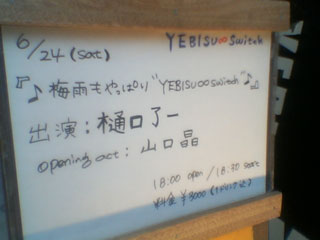 YEBISU∞Switch
6/24(sat)
『♪梅雨もやっぱり"YEBISU∞Switch"♪』
出演:樋口了一
opening act:山口晶
18:00 open/18:30 start
料金 ¥3000(1ドリンク込)